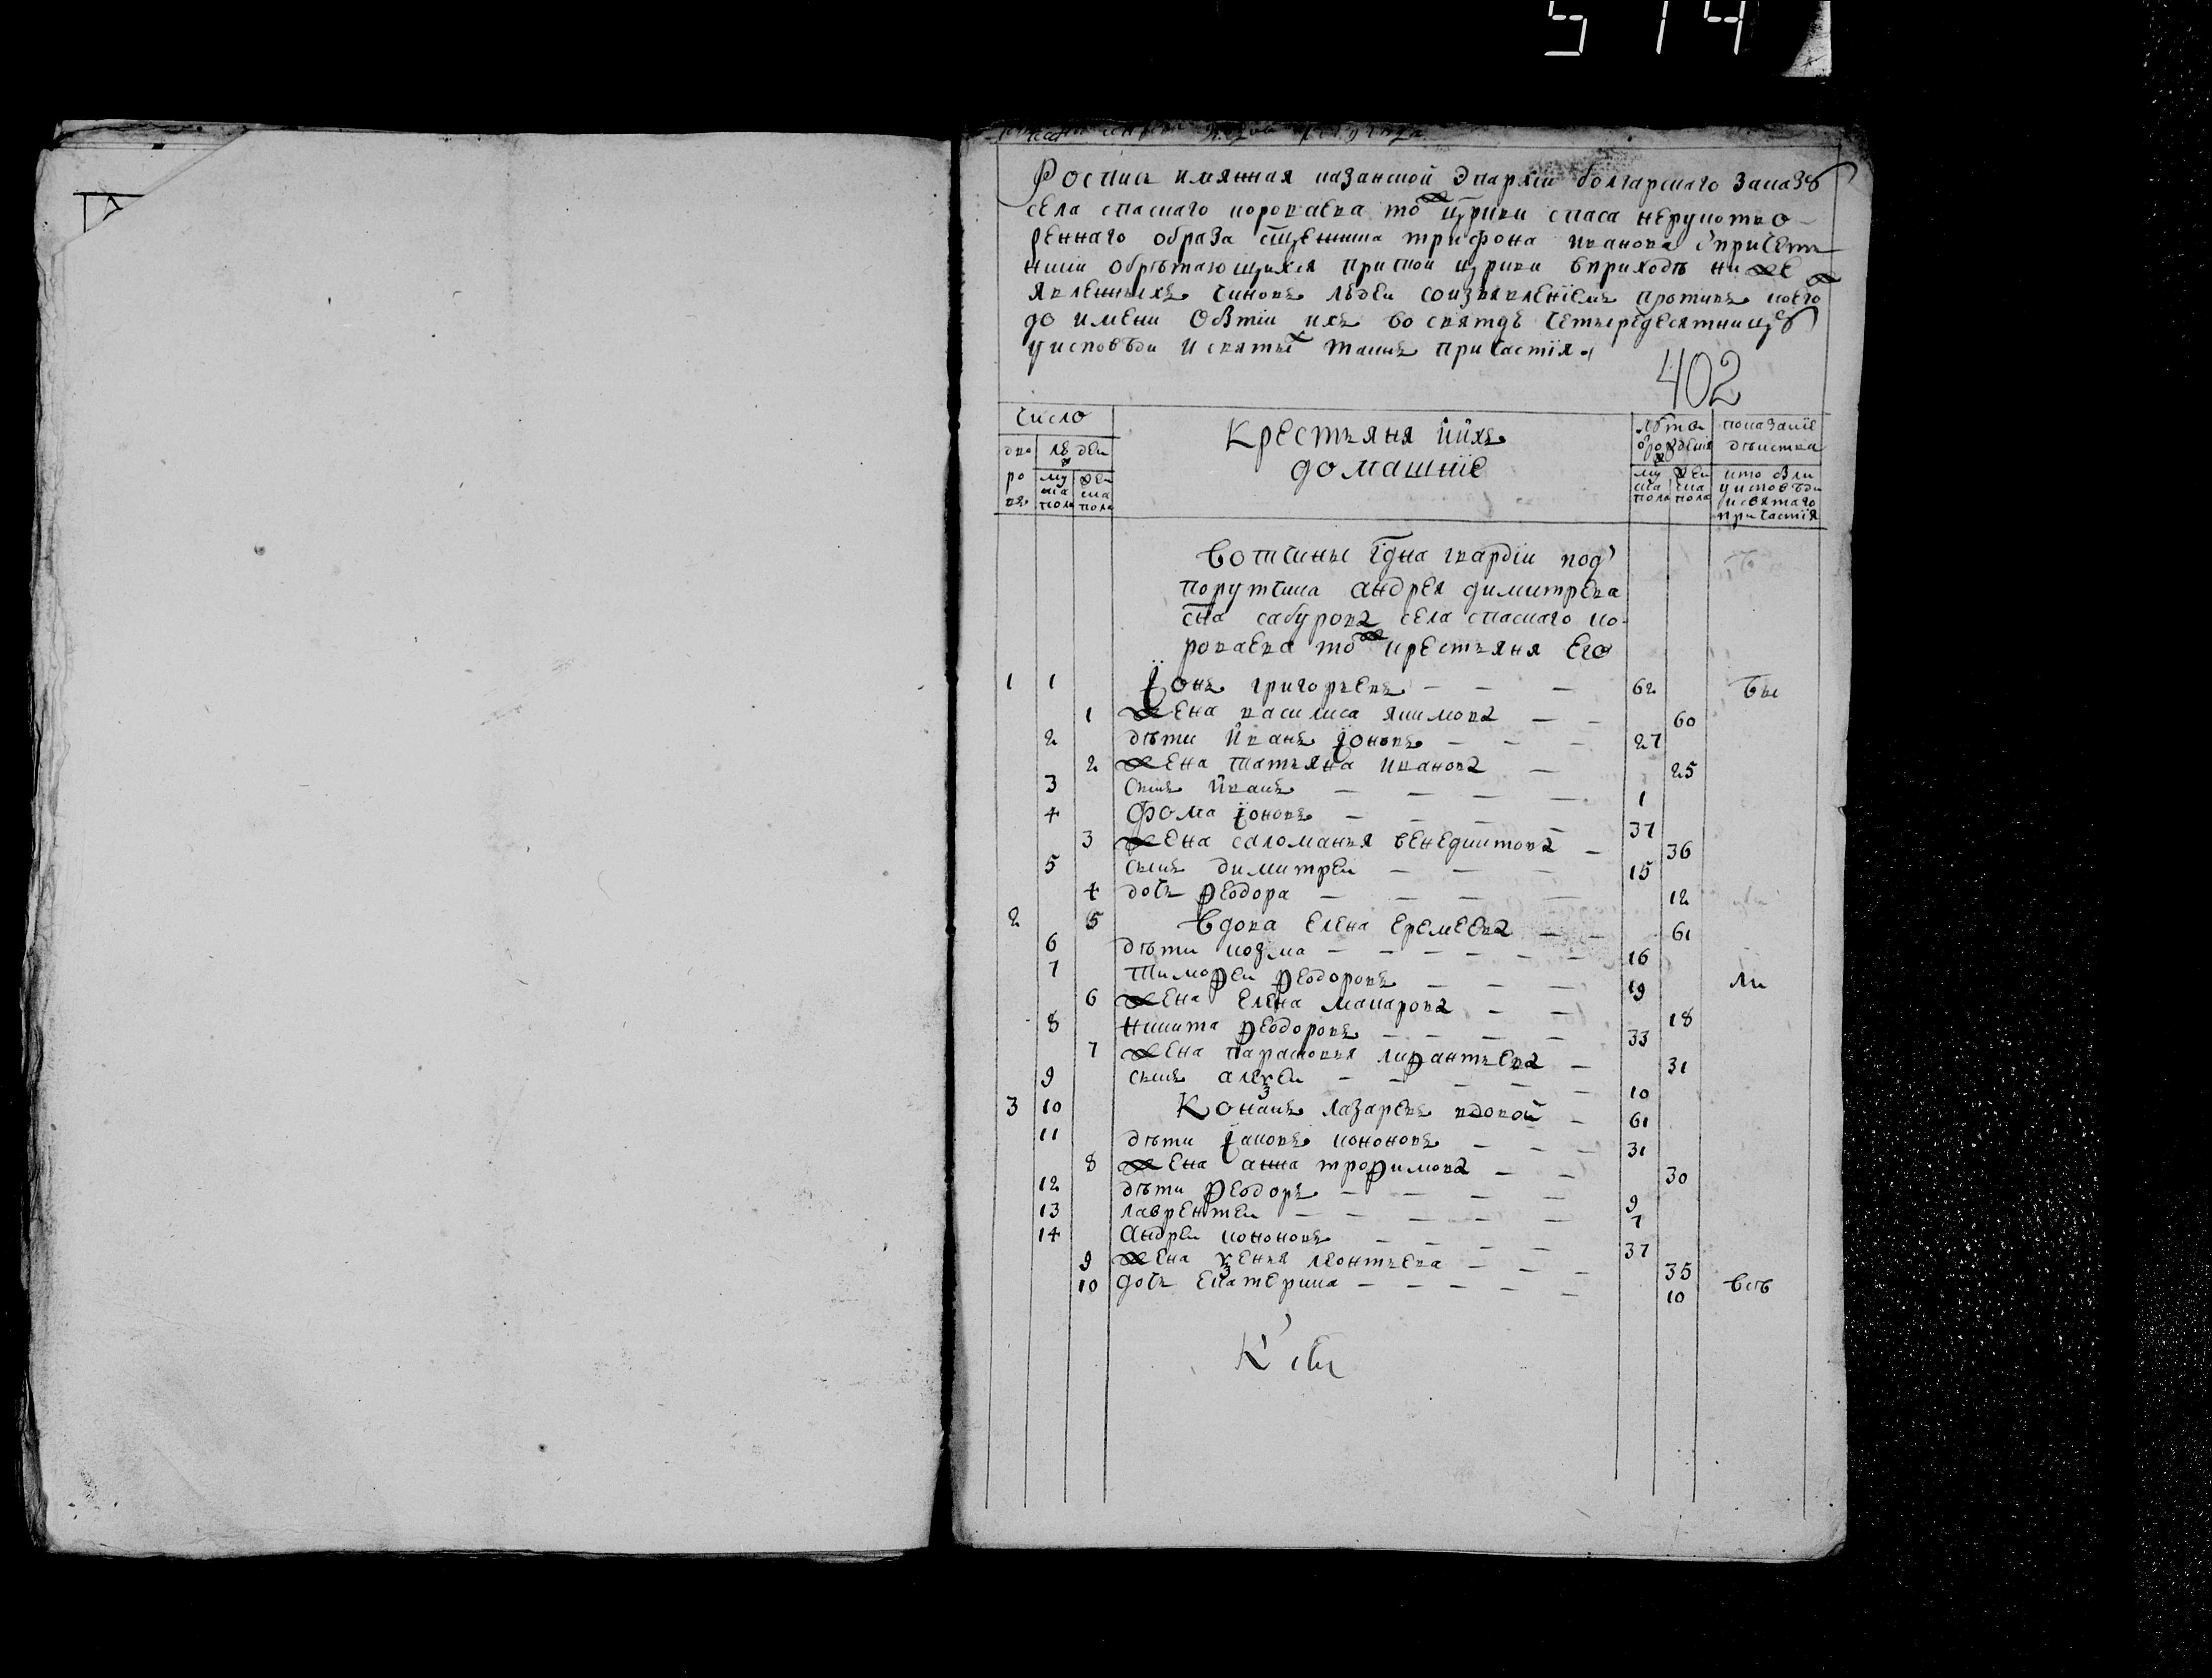 514
Роспись имянная казанской Эпархiи болгарского заказу
села спаского короваева то ж црквi спаса нерукотво-
реннаго образа сщенника трифона иванова с причетн
ники обрѣтающихся при той цркви в приходѣ ниже
явленныхъ чиновъ людеи со изъявленiемъ противъ коего ж
до имени о бытiи ихъ во святую четыредесятницу
у исповѣди и святых таинъ причастiя
402
Число
дво
ро
въ
людеи
муж
ска
пола
жен
ска
пола
Крестьяня и ихъ
домашнiе
лѣта
от рожденiя
муж
ска
пола
жен
ска
пола
показанiе
дѣиства
кто был
у исповѣди
и святаго
причастiя
Вотчины гдна гвардiи под
порутчика андрея димитрева
сна сабурова села спаского ко-
роваева то ж крестьяня Его
1 1 Iонъ григорьевъ 62 Бы
1 жена василиса якимова 60
2 дѣти Иванъ Iоновъ 27
2 жена татьяна иванова 25
3 сынъ Иванъ 1
4 Фома Iоновъ 37
3 жена саломанья венедиктова 36
5 сынъ димитреи 15
4 дочь ѳеодора 12
2 5 Вдова Елена Еремеева 61
6 дѣти козма 16
7 тимоѳеи ѳеодоровъ 19 ли
6 жена Елена макарова 18
8 никита ѳеодоровъ 33
7 жена парасковья лиѳантьева 31
9 сынъ алеѯеи 10
3 10 Кононъ лазаревъ вдовой 61
11 дѣти Iаковъ кононовъ 31
8 жена анна троѳимова 30
12 дѣти ѳеодоръ 9
13 лаврентеи 7
14 Андреи кононовъ 37
9 жена ѯенья леонтьева 35
10 дочь Екатерина 10 всѣ
К сеи